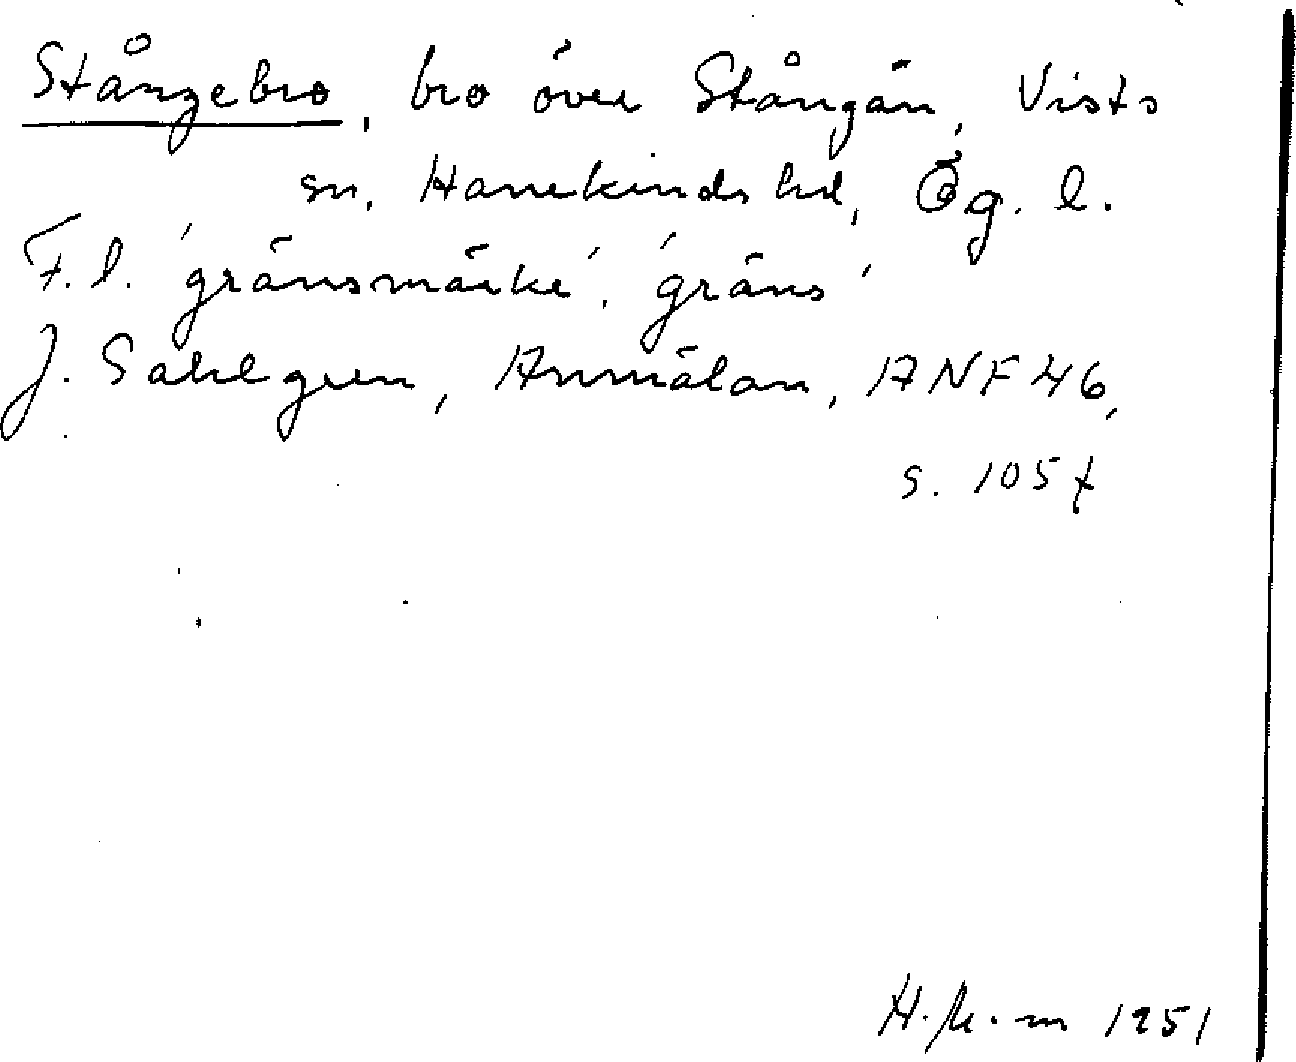 Stångebro, bro över Stångån, Vists
sn, Hanekinds hd, Ög. l.
F.l. 'gränsmärke', 'gräns'
J. Sahlgren, Anmälan, ANF 46,
s. 105 f
H. 1951